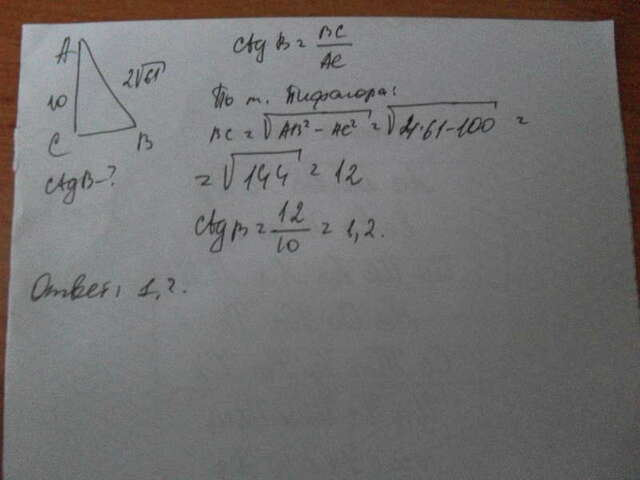 A
10
2√61
C
B
ctg B - ?
ctg B = BC/AC
По т. Пифагора:
BC = √AB² - AC² = √4·61-100 =
= √144 = 12
ctg B = 12/10 = 1,2.
Ответ: 1,2.